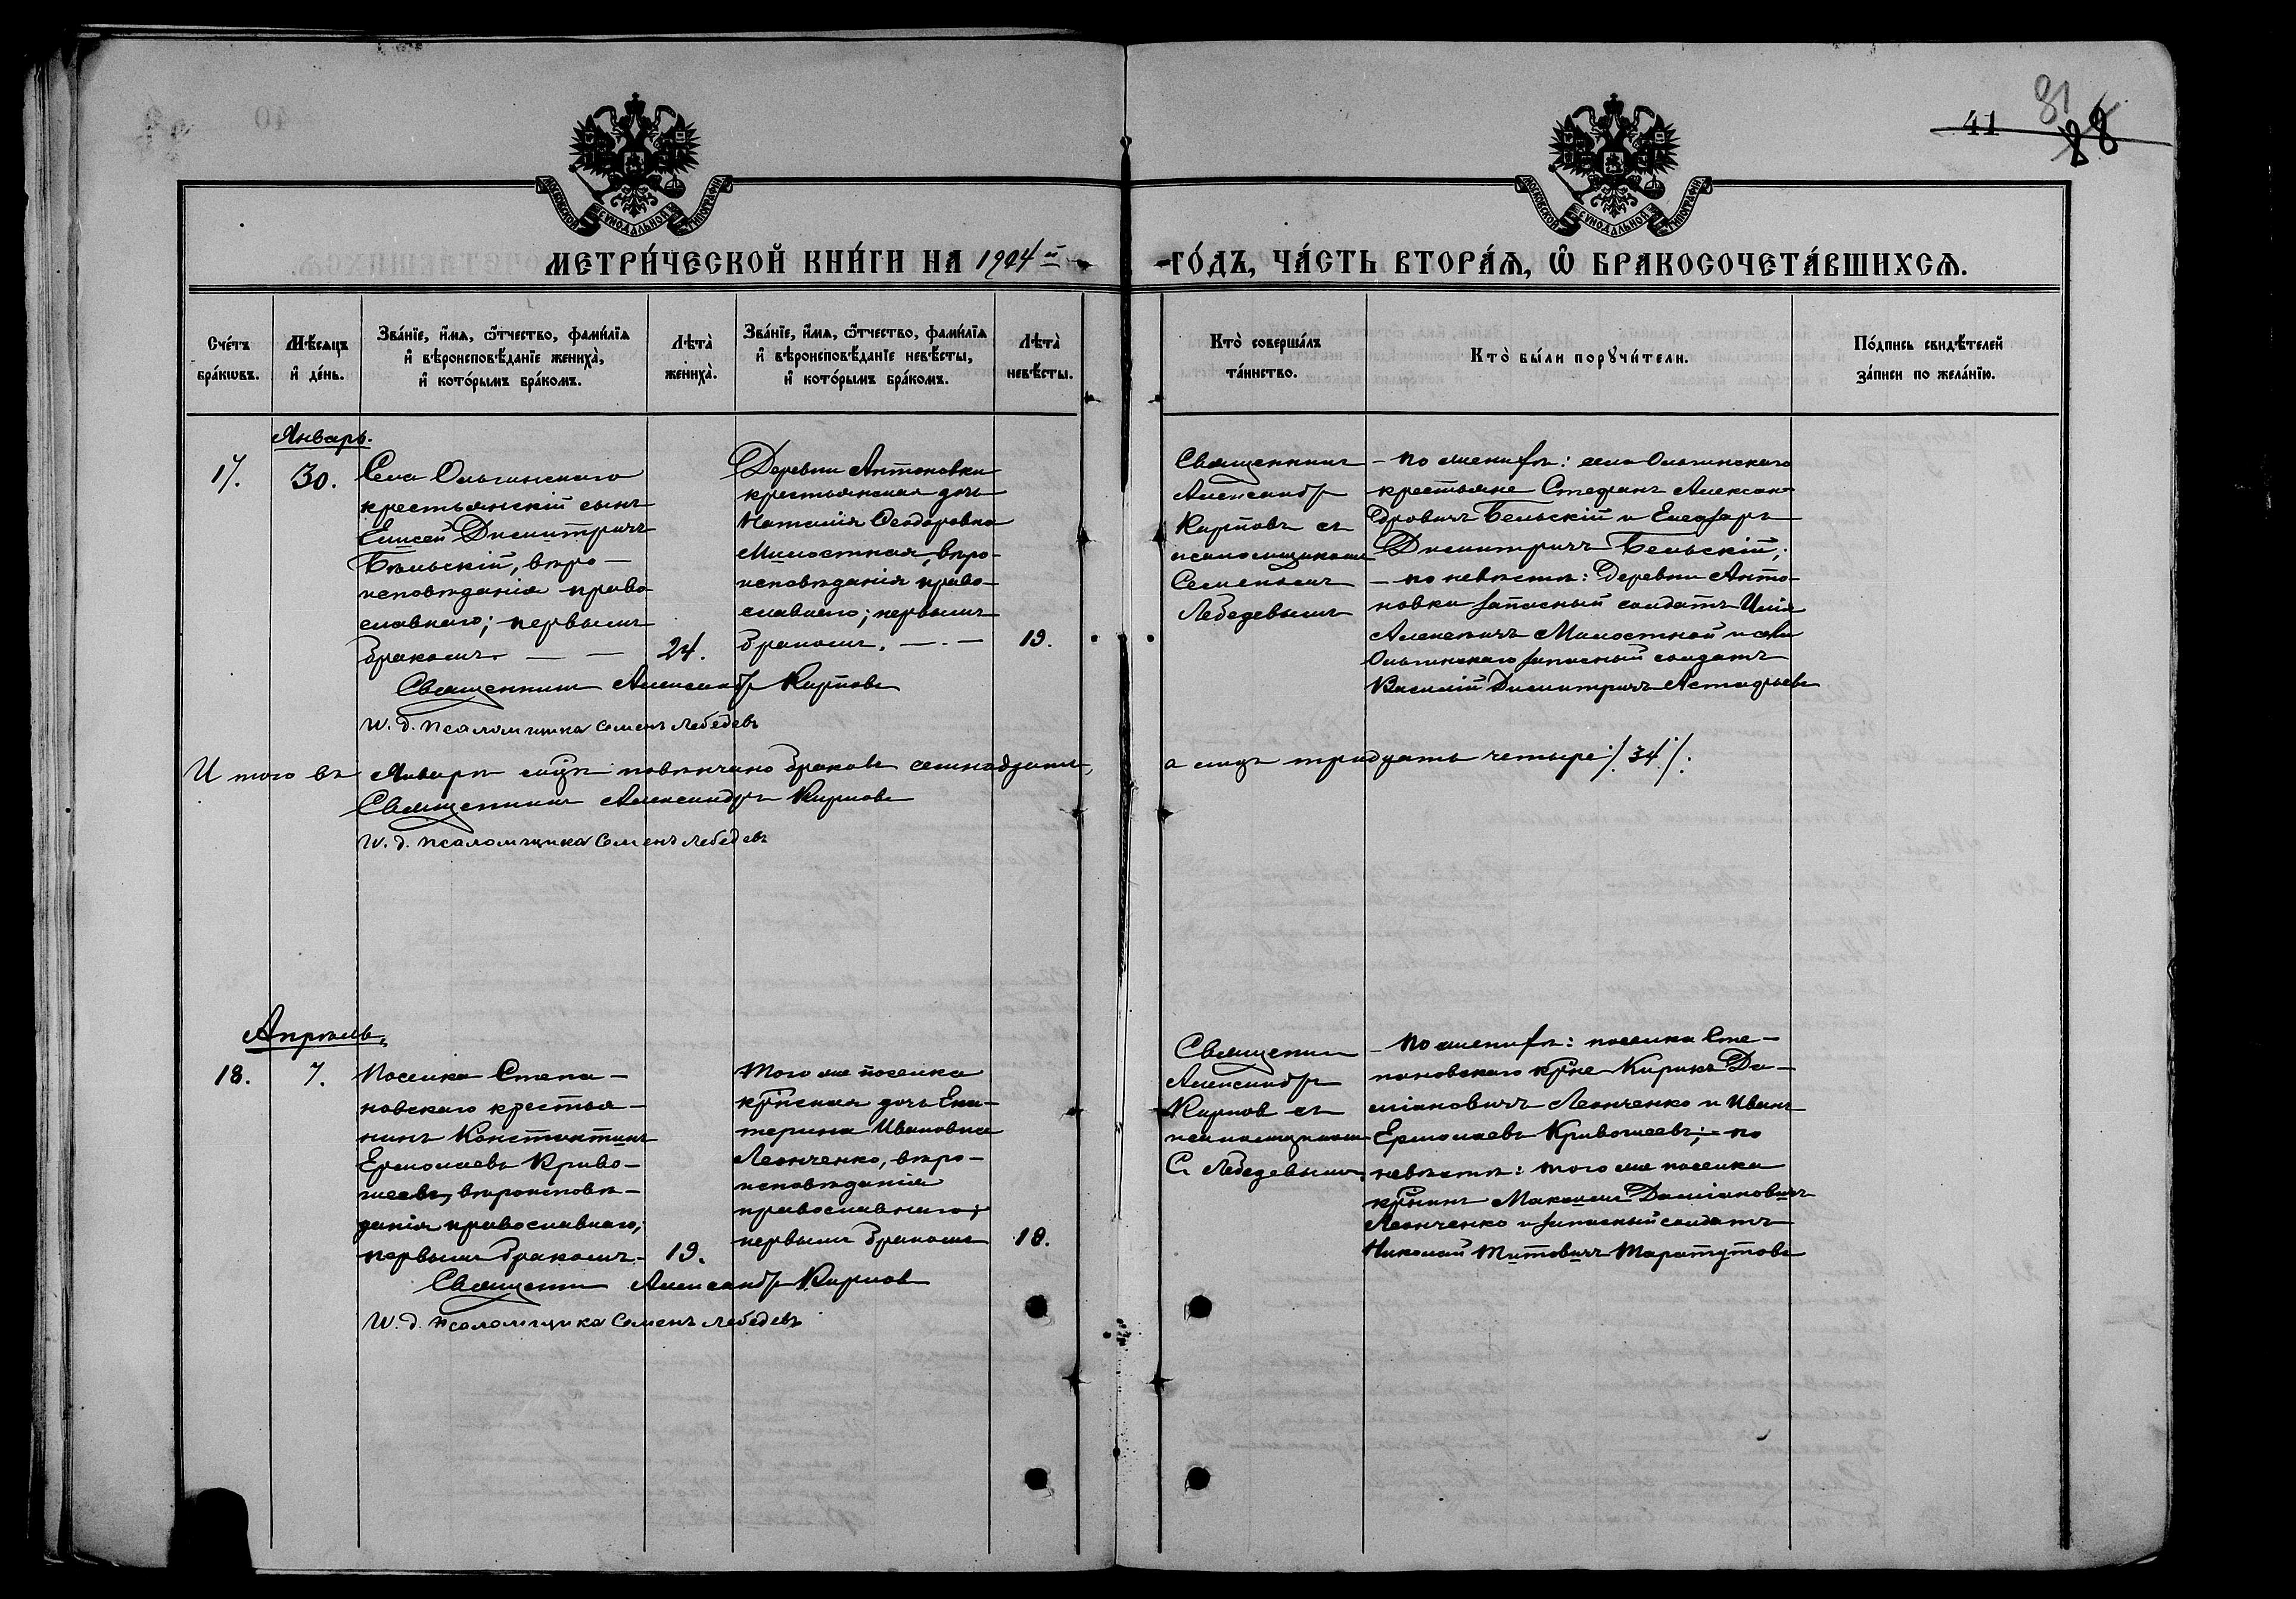 41
81
88
МОСКОВСКОЙ СѴНОДАЛЬНОЙ ТИПОГРАФІИ
МОСКОВСКОЙ СѴНОДАЛЬНОЙ ТИПОГРАФІИ
МЕТРИ́ЧЕСКОЙ КНИ́ГИ НА 1904 й
ГО́ДЪ, ЧА́СТЬ ВТОРА́Ѧ, Ѡ҆ БРАКОСОЧЕТА́ВШИХСѦ.
Сче́тъ бра́кѡвъ.
Мѣ́сѧцъ и҆ де́нь.
Зва́нїе, и҆́мѧ, ѻ҆́тчество, фами́лїѧ и҆ вѣроисповѣ́данїе жениха̀, и҆ кото́рымъ бра́комъ.
Лѣта̀ жениха̀.
Зва́нїе, и҆́мѧ, ѻ҆́тчество, фами́лїѧ и҆ вѣроисповѣ́данїе невѣ́сты, и҆ кото́рымъ бра́комъ.
Лѣта̀ невѣ́сты.
Кто̀ соверша́лъ та́инство.
Кто̀ бы́ли порꙋчи́тели.
По́дпись свидѣ́телей за́писи по жела́нїю.
Январь.
17.
30.
Села Ольгинскаго
крестьянскій сынъ
Елисей Димитричъ
Бѣльскій, вѣро-
исповѣданія право
славнаго; первымъ
бракомъ. — —
24.
Деревни Антоновки
крестьянская дочь
Наталія Ѳеодоровна
Милостная, вѣро-
исповѣданія право-
славнаго; первымъ
бракомъ. — . —
19.
Священникъ
Александръ
Карповъ съ
псаломщикомъ
Семеномъ
Лебедевымъ
- по женихѣ: села Ольгинскаго
крестьяне Стефанъ Алексан-
дровичъ Бельскій и Елеазаръ
Димитричъ Бельскій;
- по невѣстѣ: Деревни Анто-
новки запасный солдатъ Илія
Алексѣичъ Милостной и села
Ольгинскаго запасный солдатъ
Василій Димитричъ Астафьевъ
Священникъ Александръ Карповъ
И. д. псаломщика Семенъ Лебедевъ
И того въ Январѣ мцѣ повѣнчано браковъ семнадцать,
а лицъ тридцать четыре /. 34 /.
Священникъ Александръ Карповъ
И. д. псаломщика Семенъ Лебедевъ
Апрѣль.
18.
7.
Поселка Степа-
новскаго крестья-
нинъ Константинъ
Ермолаевъ Криво-
шеевъ, вѣроисповѣ-
данія православнаго;
первымъ бракомъ.
19.
Того же поселка
кр̃нская дочь Ека-
терина Ивановна
Леонченко, вѣро-
исповѣданія
православнаго;
первымъ бракомъ
18.
Священник
Александръ
Карпов съ
псаломщикомъ
С. Лебедевымъ.
- По женихѣ: поселка Сте-
пановскаго кр̃не Кирикъ Да-
міановичъ Леонченко и Иванъ
Ермолаевъ Кривошеевъ; - по
невѣстѣ: того же поселка
кр̃нинъ Максимъ Даміановичъ
Леонченко и запасный солдатъ
Николай Титовичъ Таратутовъ
Священник Александръ Карпов
И. д. псаломщика Семенъ Лебедевъ